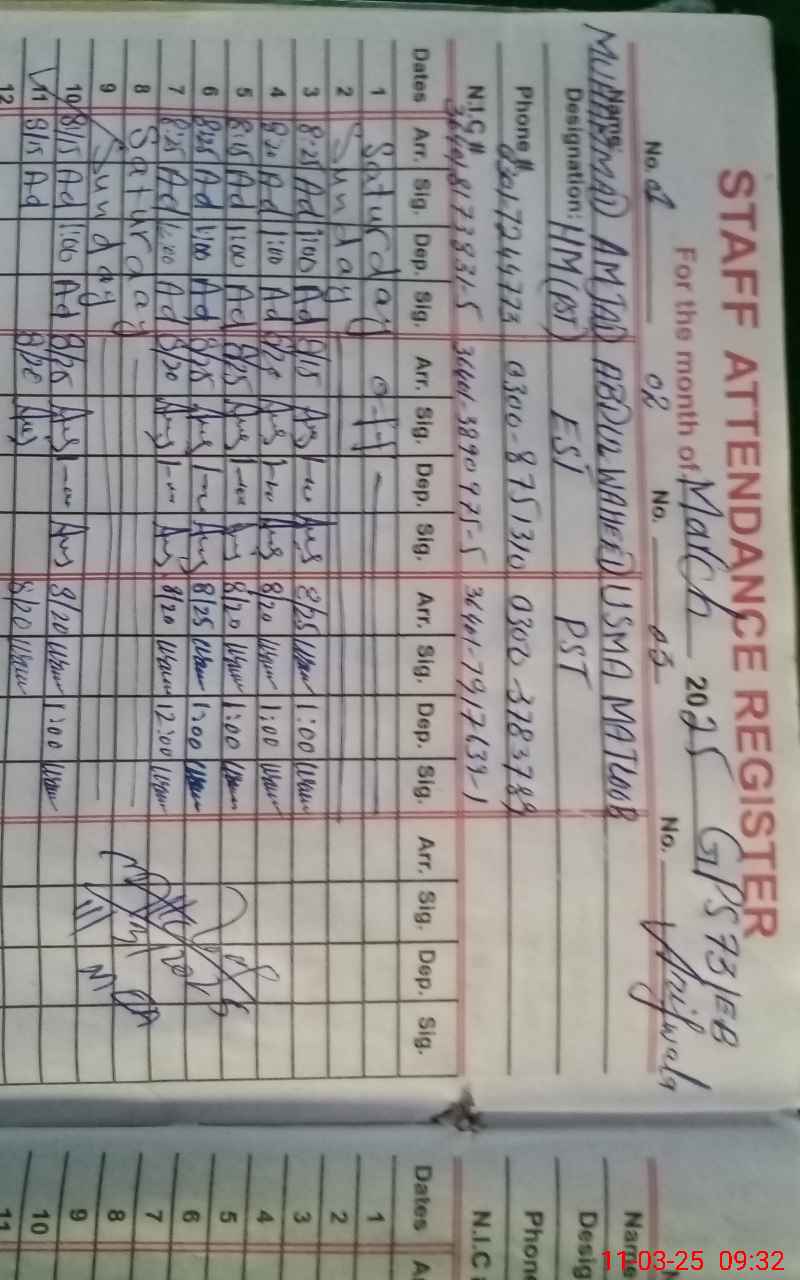 STAFF ATTENDANCE REGISTER
For the month of March 2025 GPS 73/EB Arifwala
No. 01 No. 02 No. 03 No.
Name: MUHAMMAD AMJAD ABDUL WAHEED USMA MATLOOB
Designation: HM(PST) EST PST
Phone# 0301-7244773 0300-8751310 0300-3783789
N.I.C# 36401-8173831-5 36401-3890975-5 36401-7917639-1
Dates Arr. Sig. Dep. Sig. Arr. Sig. Dep. Sig. Arr. Sig. Dep. Sig. Arr. Sig. Dep. Sig.
1 Saturday off
2 Sunday
3 8:25 Ad 1:00 Ad 8/15 1-00 8/25 1:00
4 8:20 Ad 1:00 Ad 8/20 1-00 8/20 1:00
5 8:15 Ad 1:00 Ad 8/25 1-00 8/20 1:00
6 8:25 Ad 1:00 Ad 8/25 1-00 8/25 1:00
7 8:25 Ad 12:00 Ad 8/20 8/20 12:00
8 Saturday
9 Sunday
10 8/15 Ad 1:00 Ad 8/25 1-00 8/20 1:00
11 8/15 Ad 8/20 8/20
12
Name
Desig
Phon
N.I.C
Dates A
1
2
3
4
5
6
7
8
9
10
11
11-03-25 09:32